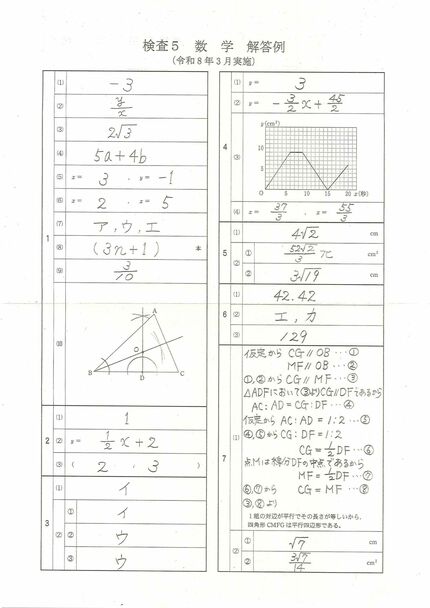 検査5 数 学 解答例
(令和8年3月実施)
1
(1) -3
(2) y/x
(3) 2√3
(4) 5a+4b
(5) x= 3 , y= -1
(6) x= 2 , x= 5
(7) ア, ウ, エ
(8) (3n+1) 本
(9) 3/10
(10)
A
O
B D C
2
(1) 1
(2) y= 1/2 x+2
(3) ( 2 , 3 )
3
(1) イ
(2) ① イ
② ウ
③ ウ
4
(1) y= 3
(2) y= -3/2 x+ 45/2
(3)
y(cm²)
10
5
O 5 10 15 20 x(秒)
(4) x= 37/3 , x= 55/3
5
(1) 4√2 cm
(2) ① 52√2/3 π cm³
② 3√19 cm
6
(1) 42.42
(2) エ, カ
(3) 129
7
(1)
仮定から CG∥OB …①
MF∥OB …②
①,②から CG∥MF …③
△ADFにおいて③よりCG∥DFであるから
AC:AD=CG:DF …④
仮定から AC:AD=1:2 …⑤
④,⑤からCG:DF=1:2
CG=1/2DF …⑥
点Mは線分DFの中点であるから
MF=1/2DF …⑦
⑥,⑦から CG=MF …⑧
③,⑧より
1組の対辺が平行でその長さが等しいから、
四角形CMFGは平行四辺形である。
(2) ① √7 cm
② 3√7/14 cm²